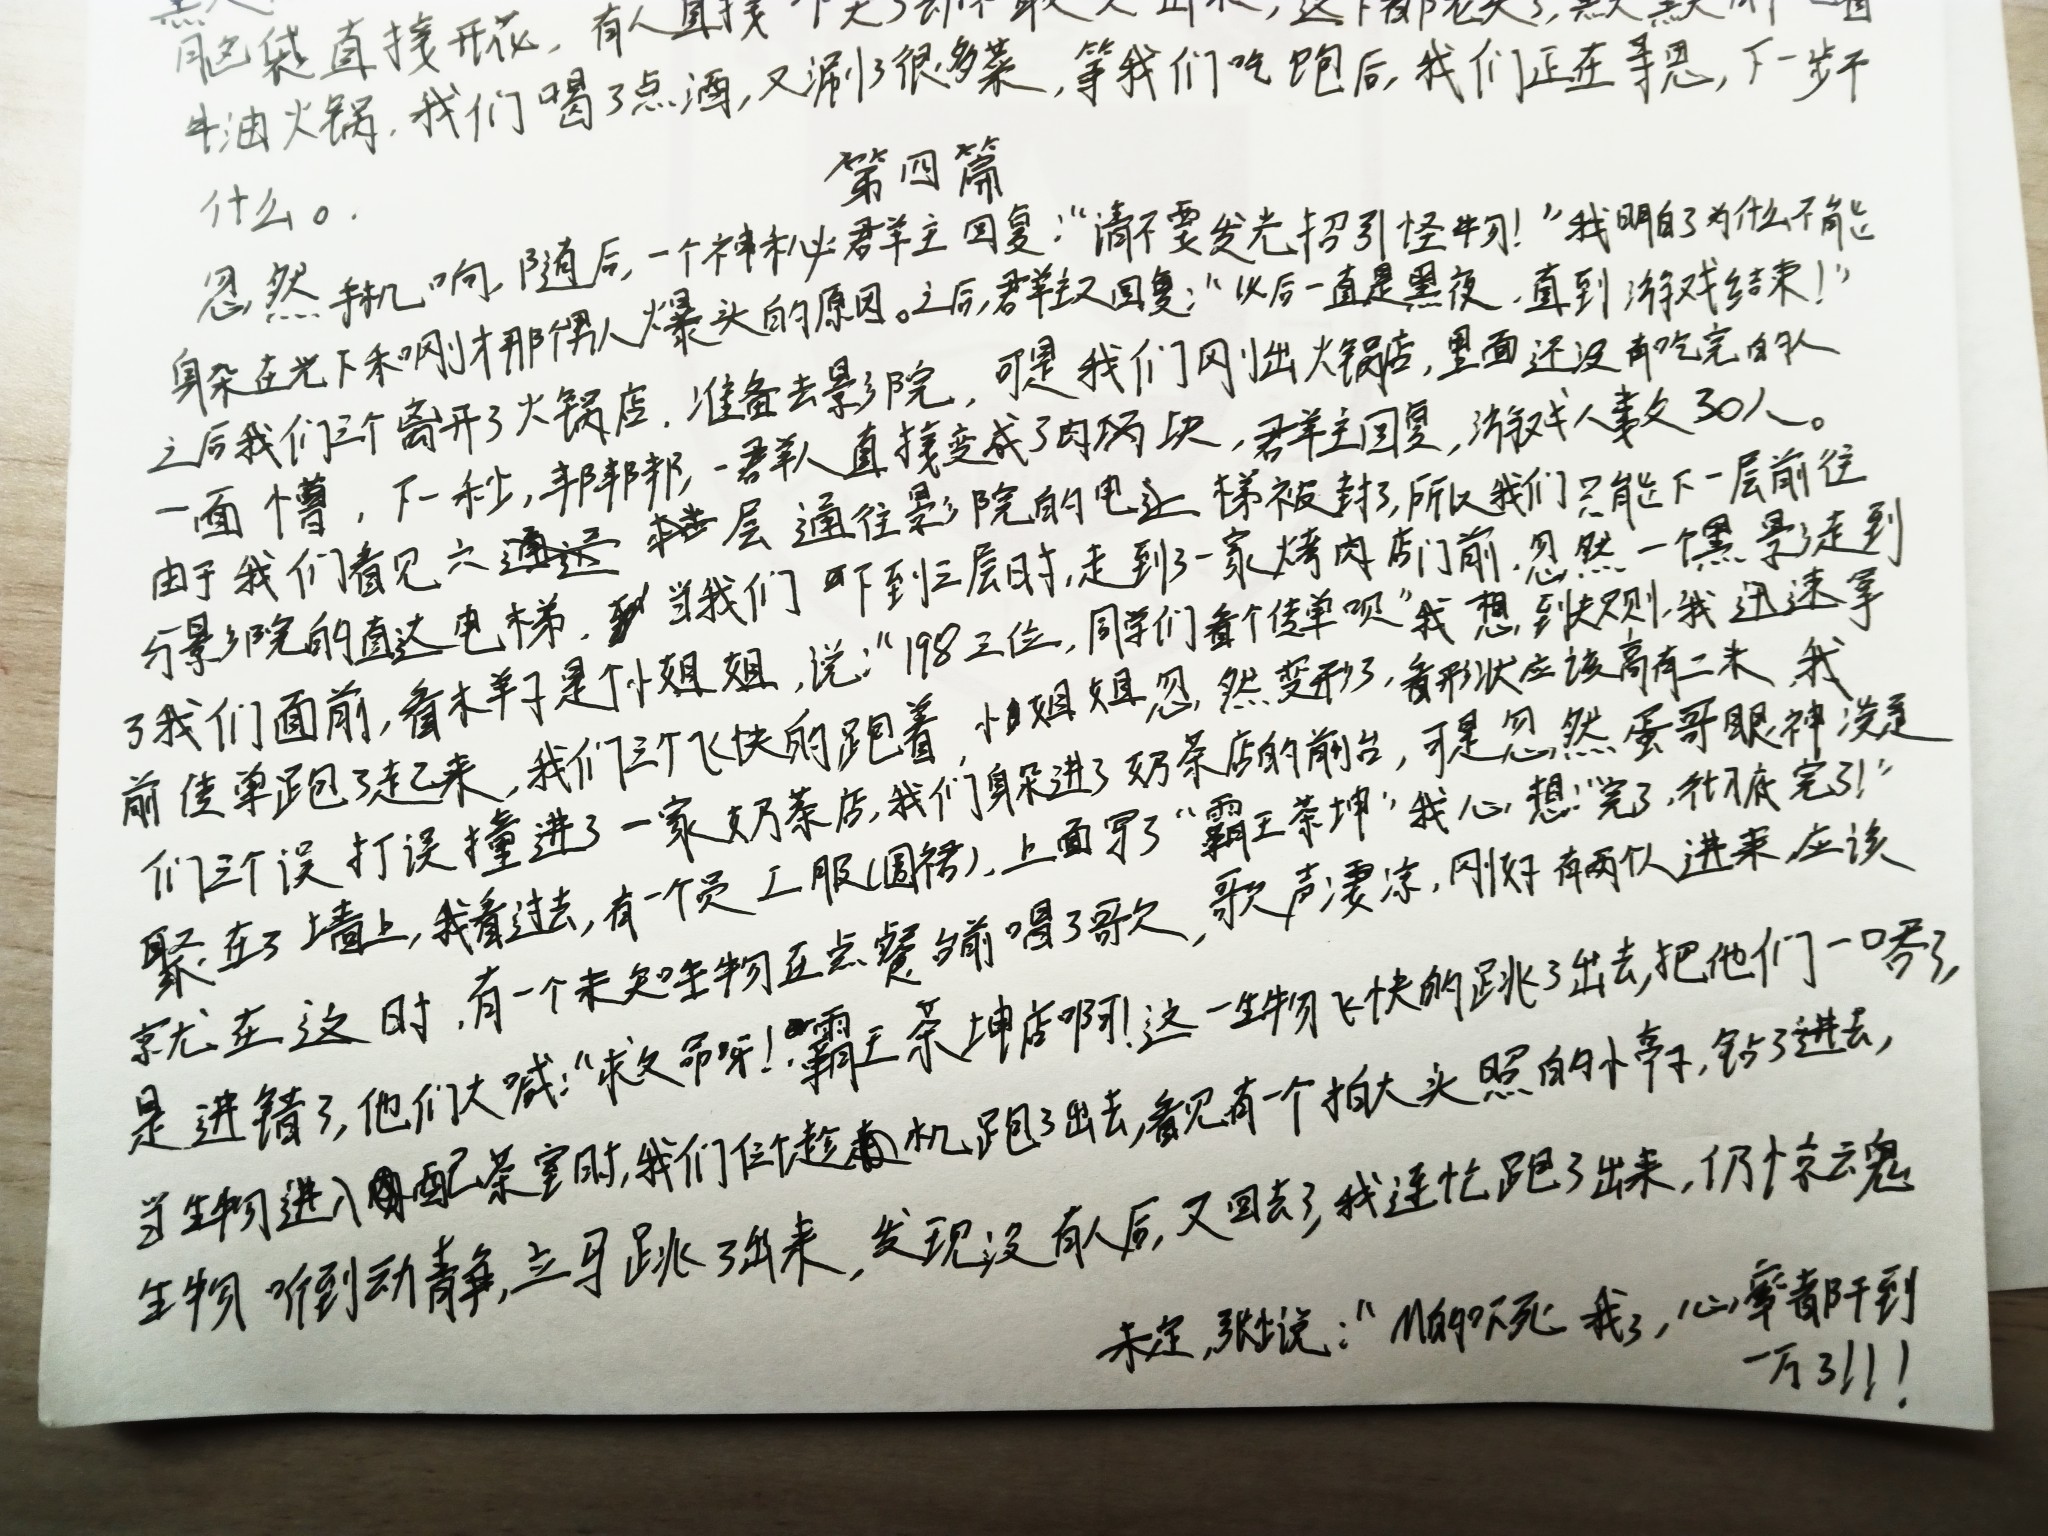 脑袋直接开花,有人直接
牛油火锅,我们喝了点酒,又涮了很多菜,等我们吃饱后,我们正在寻思,下一步干
什么。.
第四篇
忽然手机响,随后,一个神秘群主回复:“请不要发光招引怪物!”我明白了为什么不能
身朵在光下和刚才那个男人爆头的原因。之后,群主又回复:“以后一直是黑夜,直到游戏结束!”
之后我们三个离开了火锅店,准备去影院,可是我们刚出火锅店,里面还没有吃完的人
一面懵,下一秒,邦邦邦,一群人直接变成了肉块,群主回复,游戏人数30人。
由于我们看见六层通往影院的电梯被封了,所以我们只能下一层前往
影院的直达电梯,当我们下到三层时,走到了一家烤肉店门前,忽然一个黑影走到
了我们面前,看木羊子是个小姐姐,说:“198三位,同学们看个传单呗”我想到规则,我迅速拿
前传单跑了起来,我们三个飞快的跑着,小姐姐忽然变形了,看形状应该高有二米,我
们三个误打误撞进了一家奶茶店,我们身朵进了奶茶店的前台,可是忽然蛋哥眼神淡定
聚在了墙上,我看过去,有一个员工服(围裙),上面写了“霸王茶坤”我心想:“完了,彻底完了!”
就在这时,有一个未知生物在点餐台前唱了歌,歌声凄凉,刚好有两个人进来,应该
是进错了,他们大喊:“救命呀!霸王茶坤店啊!这一生物飞快的跳了出去,把他们一口吞了,
当生物进入配茶室时,我们仨个趁机跑了出去,看见有一个拍大头照的小亭子,钻了进去,
生物听到动静,立马跳了出来,发现没有人后,又回去了,我连忙跑了出来,仍惊云魂
未定,张说:“M的吓死我了,心率都干到
一万了!!!